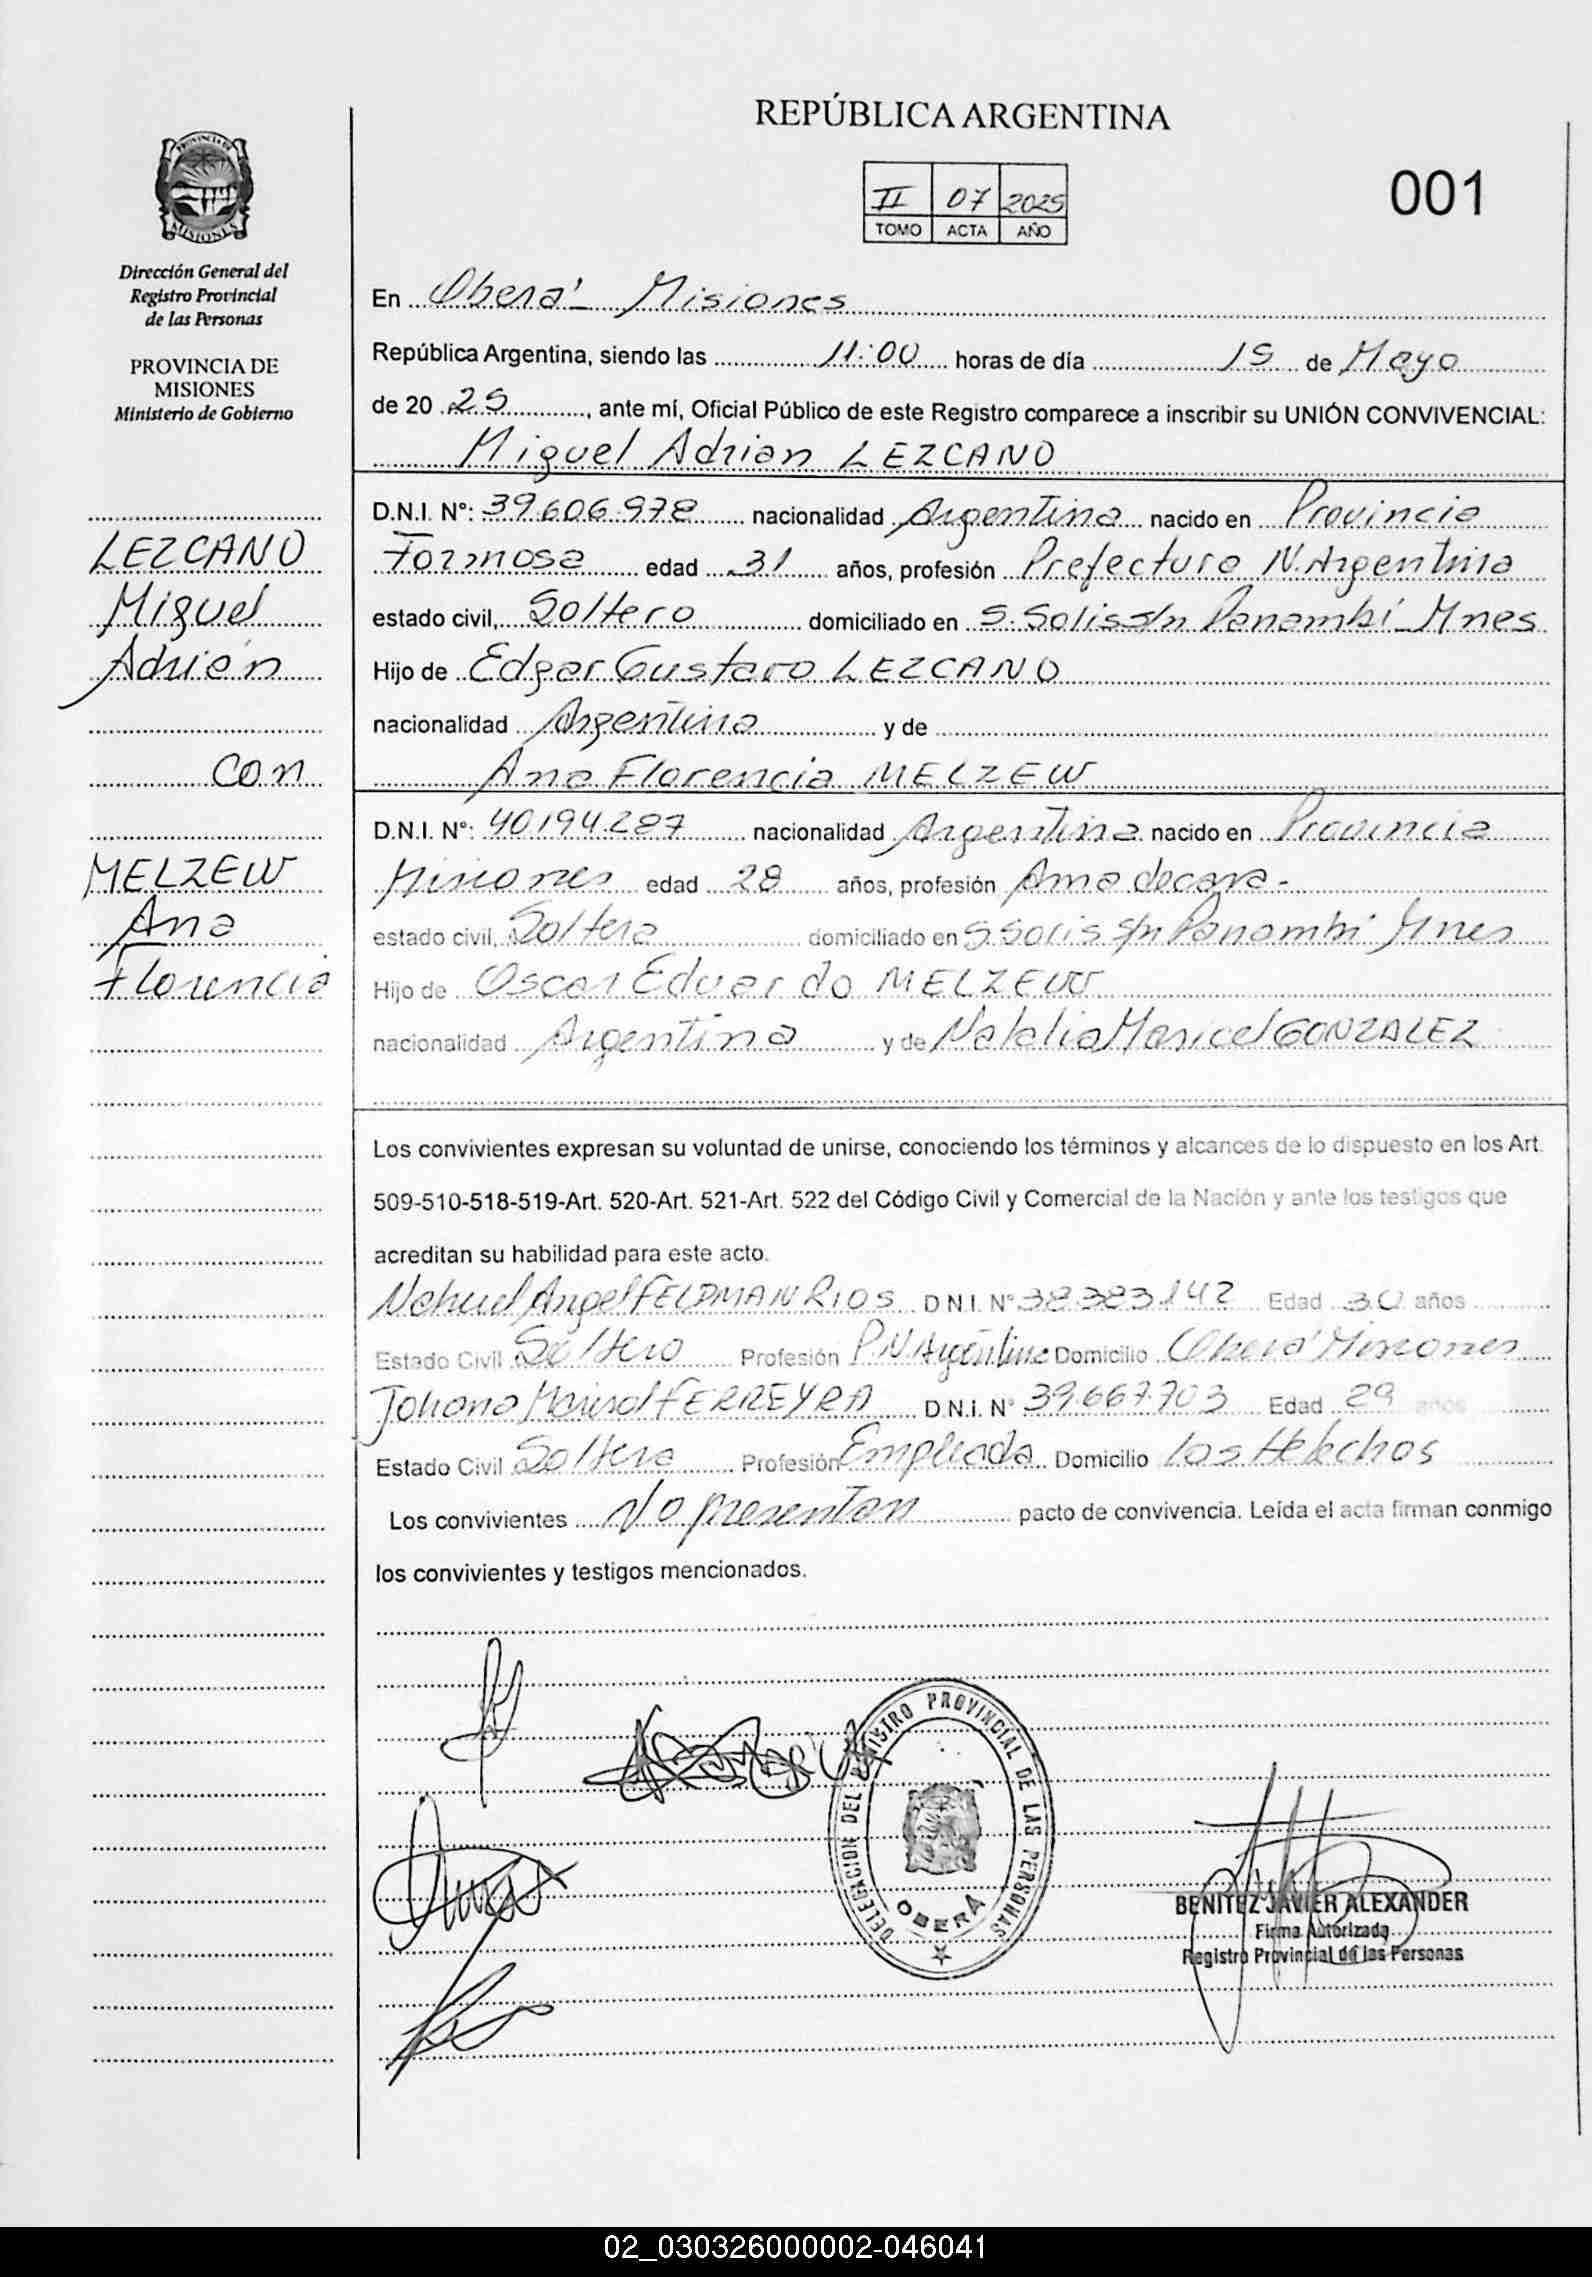 REPÚBLICA ARGENTINA
PROVINCIA DE
MISIONES
II 07 2025
TOMO ACTA AÑO
001
Dirección General del
Registro Provincial
de las Personas
PROVINCIA DE
MISIONES
Ministerio de Gobierno
LEZCANO
Miguel
Adrián
con
MELZEW
Ana
Florencia
En Oberá - Misiones
República Argentina, siendo las 11:00 horas de día 15 de Mayo
de 20 25, ante mí, Oficial Público de este Registro comparece a inscribir su UNIÓN CONVIVENCIAL:
Miguel Adrian LEZCANO
D.N.I. N°: 39.606.978 nacionalidad Argentina nacido en Provincia
Formosa edad 31 años, profesión Prefectura N. Argentina
estado civil, Soltero domiciliado en S. Solis s/n Panambí - Mnes
Hijo de Edgar Gustavo LEZCANO
nacionalidad Argentina y de
Ana Florencia MELZEW
D.N.I. N°: 40.194.287 nacionalidad Argentina nacido en Provincia
Misiones edad 28 años, profesión Ama de casa -
estado civil, Soltera domiciliado en S Solis s/n Panambí Mnes
Hijo de Oscar Eduardo MELZEW
nacionalidad Argentina y de Natalia Maricel GONZALEZ
Los convivientes expresan su voluntad de unirse, conociendo los términos y alcances de lo dispuesto en los Art.
509-510-518-519-Art. 520-Art. 521-Art. 522 del Código Civil y Comercial de la Nación y ante los testigos que
acreditan su habilidad para este acto.
Nahuel Angel FELDMAN RIOS D.N.I. N° 38.383.142 Edad 30 años
Estado Civil Soltero Profesión P.N Argentina Domicilio Oberá Misiones
Johana Marisol FERREYRA D.N.I. N° 39.667.703 Edad 29 años
Estado Civil Soltera Profesión Empleada Domicilio Los Helechos
Los convivientes No presentan pacto de convivencia. Leída el acta firman conmigo
los convivientes y testigos mencionados.
DELEGACION DEL REGISTRO PROVINCIAL DE LAS PERSONAS
OBERÁ
BENITEZ JAVIER ALEXANDER
Firma Autorizada
Registro Provincial de las Personas
02_030326000002-046041